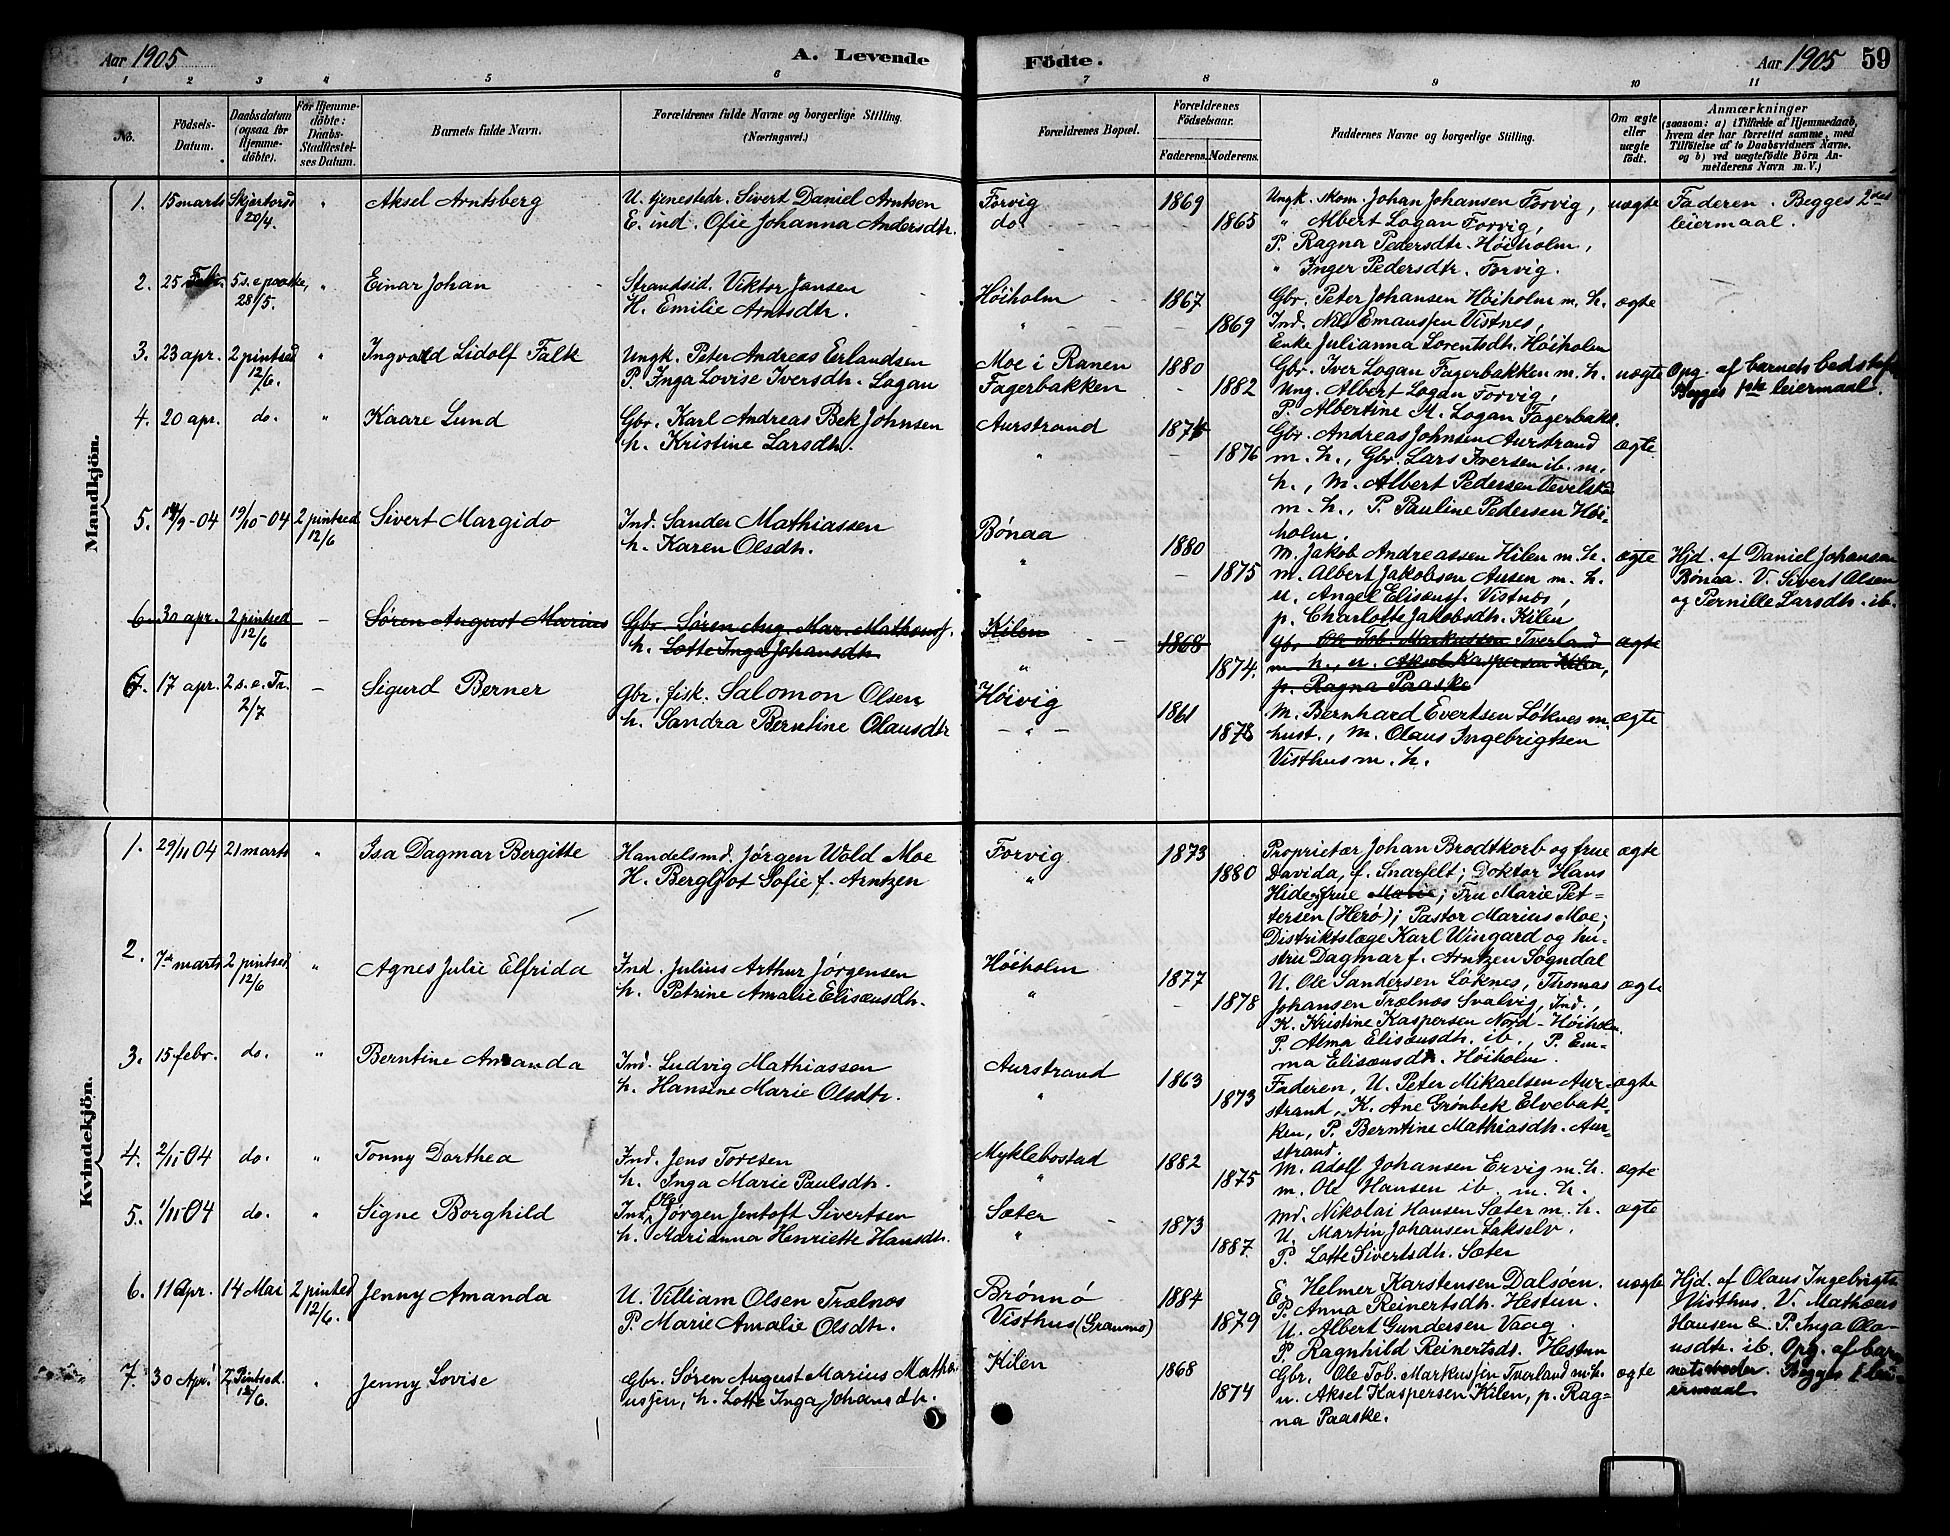 Aar 1905
A. Levende
Födte.
Aar 1905
59
1 2 3 4 5 6 7 8 9 10 11
No.
Födsels-Datum.
Daabsdatum (ogsaa for Hjemme-döbte).
For Hjemme-döbte: Daabs-Stadfæstel-ses Datum.
Barnets fulde Navn.
Forældrenes fulde Navne og borgerlige Stilling. (Næringsvei.)
Forældrenes Bopæl.
Forældrenes Födselsaar.
Faderens. Moderens.
Faddernes Navne og borgerlige Stilling.
Om ægte eller uægte födt.
Anmærkninger
(saasom: a) i Tilfælde af Hjemmedaab, hvem der har forrettet samme, med Tilföielse af to Daabsvidners Navne. og b) ved uægtefödte Börn Anmelderens Navn m. V.)
Mandkjön.
1. 15 marts Skjærtorsd 20/4. " Aksel Arntsberg
U. tjenestedr. Sivert Daniel Arntsen
E. ind. Ofie Johanna Andersdtr.
Forvig
do
1869
1865
Ungk. skom. Johan Johansen Forvig,
" Albert Logan Forvig,
P. Ragna Pedersdtr. Høiholm,
" Inger Pedersdtr. Forvig.
uægte
Faderen. Begges 2det
leiermaal.
2. 25 Feb. 5 s. e. paaske, 28/5. " Einar Johan
Strandsid. Viktor Jansen
H. Emilie Arntsdtr.
Høiholm
"
1867
1869
Gbr. Peter Johansen Høiholm m. h.
Ind. Nils Emaussen Vistnes,
Enke Julianna Lorentsdtr. Høiholm
ægte
3. 23 apr. 2 pintsed 12/6. " Ingvald Lidolf Falk
Ungk. Peter Andreas Erlandsen
P. Inga Lovise Iversdtr. Logan
Moe i Ranen
Fagerbakken
1880
1882
Gbr. Iver Logan Fagerbakken m. h.
Ung. Albert Logan Forvig,
P. Albertine M. Logan Fagerbakk.
uægte
Opg. af barnets bedstef.
Begges 1ste leiermaal.
4. 20 apr. do. " Kaare Lund
Gbr. Karl Andreas Bek Johnsen
h. Kristine Larsdtr.
Aurstrand
"
1874
1876
Gbr. Andreas Johnsen Aurstrand
m. h., Gbr. Lars Iversen ib. m.
h., M. Albert Pedersen
m. h., P. Pauline Pedersen Høi-
holm.
ægte
5. 14/9-04 19/10-04 2 pintsed 12/6 Sivert Margido
Ind. Sander Mathiassen
h. Karen Olsdtr.
Bønaa
"
1880
1875
M. Jakob Andreassen Hilen m. h.
m. Albert Jakobsen Ausen m. h.
u. Angel Elisæusf. Vistnæs,
p. Charlotte Jakobsdtr. Kilen
ægte
Hjd. af Daniel Johansen
Bønaa. V. Sivert Olsen
og Pernille Larsdtr. ib.
6. 30 apr. 2 pintsed 12/6 - Søren August Marius
Gbr. Søren Aug. Mar. Mathæusf.
h. Lotte Inga Johansdtr
Kilen
"
1868
1874.
Gbr Ole Tob. Markussen Tverland
m. h., u. Aksel Kaspersen Kilen,
p. Ragna Paaske
ægte
6. 17 apr. 2. s. e. Tr. 2/7 - Sigurd Berner
Gbr. fisk. Salomon Olsen
h. Sandra Berntine Olausdtr
Høivig
- " -
1861
1878
M. Bernhard Evertsen Løknes m.
hust., M. Olaus Ingebrigtsen
Visthus m. h.
ægte
Kvindekjön.
1. 29/11 04 21 marts " Isa Dagmar Bergitte
Handelsmd. Jørgen Wold Moe
H. Bergljot Sofie f. Arntzen
Forvig
"
1873
1880
Proprietær Johan Brodtkorb og frue
Davida, f. Snarfelt; Doktor Hans
Hide, frue Marie; Fru Marie Pet-
tersen (Herø); Pastor Marius Moe;
Distriktslæge Karl Wingard og hu-
stru Dagmar f. Arntzen Sogndal
ægte
2. 7de marts 2 pintsed 12/6 " Agnes Julie Elfrida
Ind. Julius Arthur Jørgensen
h. Petrine Amalie Elisæusdtr.
Høiholm
"
1877
1878
U. Ole Sandersen Løknes, Thomas
Johansen Trælnæs Svalvig, Ind.,
K. Kristine Kaspersen Nord-Høiholm.
P. Alma Elisæusdtr. ib., P. Em-
ma Elisæusdtr. Høiholm.
ægte
3. 15 febr. do. " Berntine Amanda
Ind. Ludvig Mathiassen
h. Hansine Marie Olsdtr.
Aurstrand
"
1863
1873
Faderen, U. Peter Mikaelsen Aur-
strand, K. Ane Grønbek Elvebak-
ken, P. Berntine Mathiasdtr. Aur-
strand.
ægte
4. 2/11 04 do. " Tonny Dorthea
Ind. Jens Toresen
h. Inga Marie Paulsdtr.
Myklebostad
"
1882
1875
M. Adolf Johansen Ervig m. h.
m. Ole Hansen ib. m. h.
ægte
5. 1/11 04 do. " Signe Borghild
Ind. Ole Jørgen Jentoft Sivertsen
h. Marianna Henriette Hansdtr.
Sæter
"
1873
1887.
Md. Nikolai Hansen Sæter m. h.
U. Martin Johansen Lakselv.
P. Lotte Sivertsdtr. Sæter
ægte
6. 11 Apr. 14 Mai 2 pintsed 12/6. Jenny Amanda
U. Villiam Olsen Trælnæs
P. Marie Amalie Olsdtr.
Brønnø
Visthus (Granmo)
1884
1879
E. Helmer Karstensen Dalsøen.
P. Anna Reinertsdtr. Hestun.
U. Albert Gundersen Vaag.
P. Ragnhild Reinertsd. Hestun
uægte
Hjd. af Olaus Ingebrigts
Visthus. V. Mathæus
Hansen & P. Inga Ola-
usdtr. ib. Opg. af bar-
nets moder. Begges 1 lei-
ermaal
7. 30 April 2 Pintsed. 12/6. " Jenny Lovise
Gbr. Søren August Marius Mathæ-
usjen, h. Lotte Inga Johansdtr.
Kilen
1868
1874
Gbr. Ole Tob. Markussen Tverland m. h.
u. Aksel Kaspersen Kilen, p. Rag-
na Paaske.
ægte